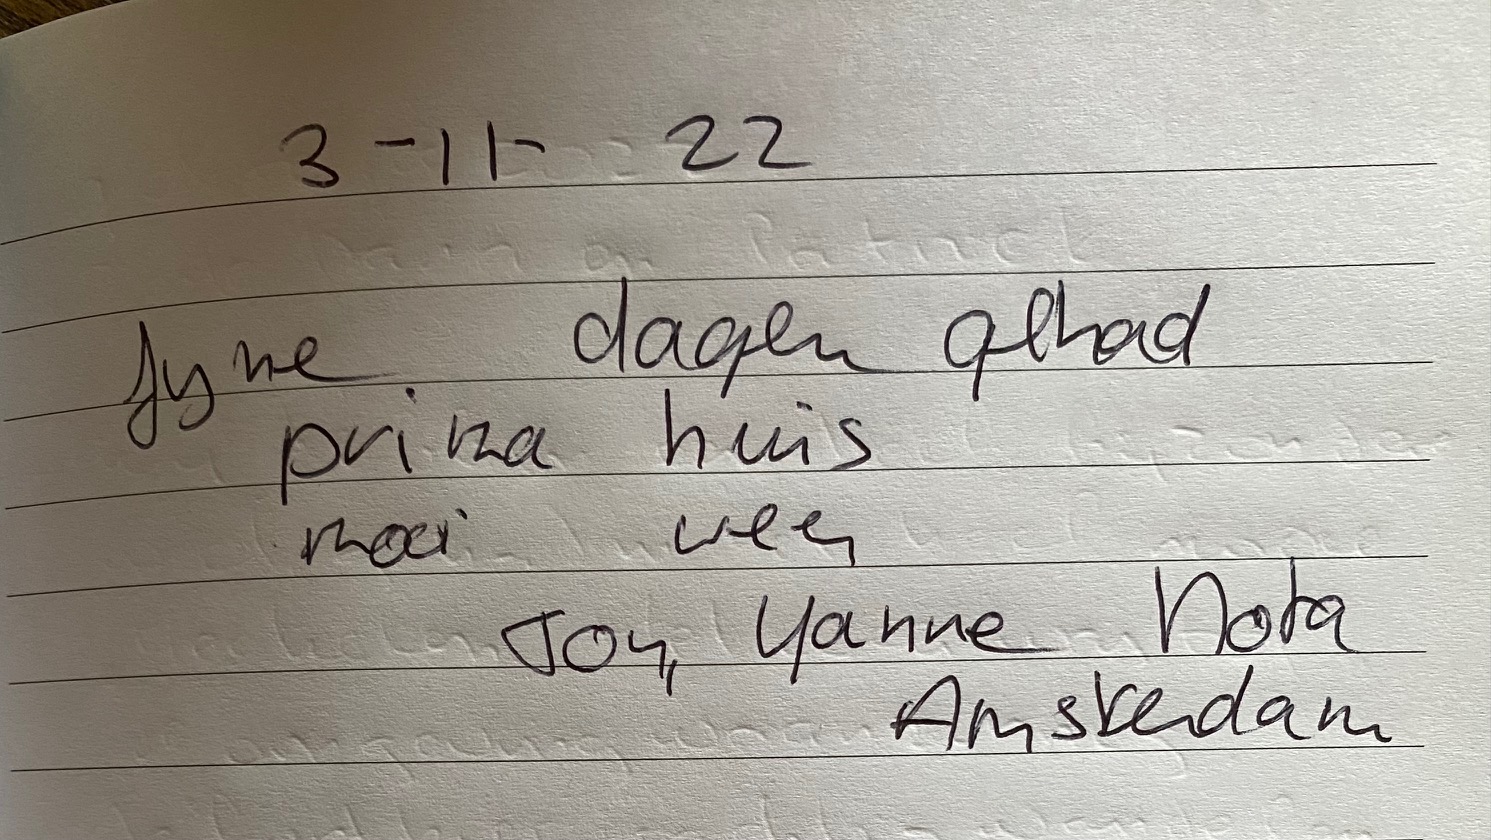 3-11-22
fyne dagen gehad
prima huis
mooi weer
Joy, Yanne Nota
Amsterdam